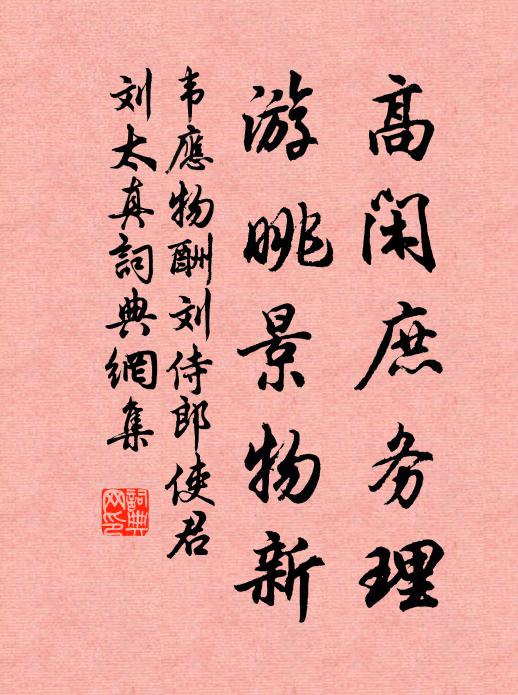 高闲庶务理
游眺景物新
韦應物酬刘侍郎使君
刘太真詞典網集
詞典
网印